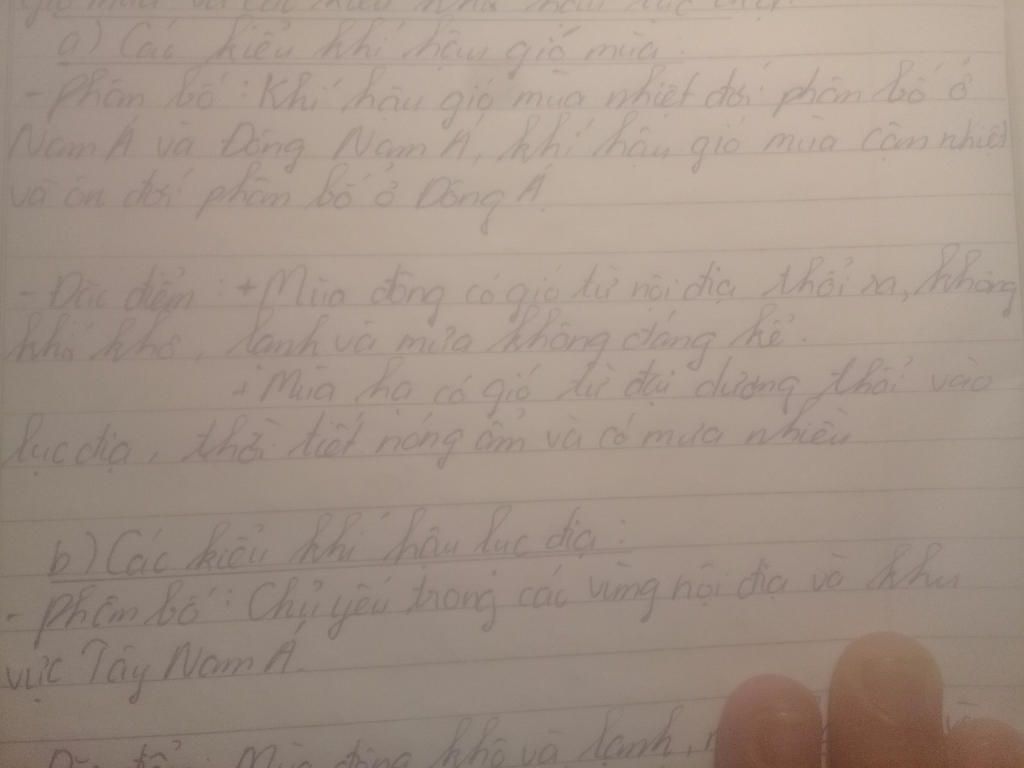 gió mùa và các kiểu khí hậu lục địa:
a) Các kiểu khí hậu gió mùa:
- Phân bố: Khí hậu gió mùa nhiệt đới phân bố ở
Nam Á và Đông Nam Á, khí hậu gió mùa cận nhiệt
và ôn đới phân bố ở Đông Á.
- Đặc điểm: + Mùa đông có gió từ nội địa thổi ra, không
khí khô, lạnh và mưa không đáng kể.
+ Mùa hạ có gió từ đại dương thổi vào
lục địa, thời tiết nóng ẩm và có mưa nhiều
b) Các kiểu khí hậu lục địa:
- Phân bố: Chủ yếu trong các vùng nội địa và khu
vực Tây Nam Á.
Mùa đông khô và lạnh,